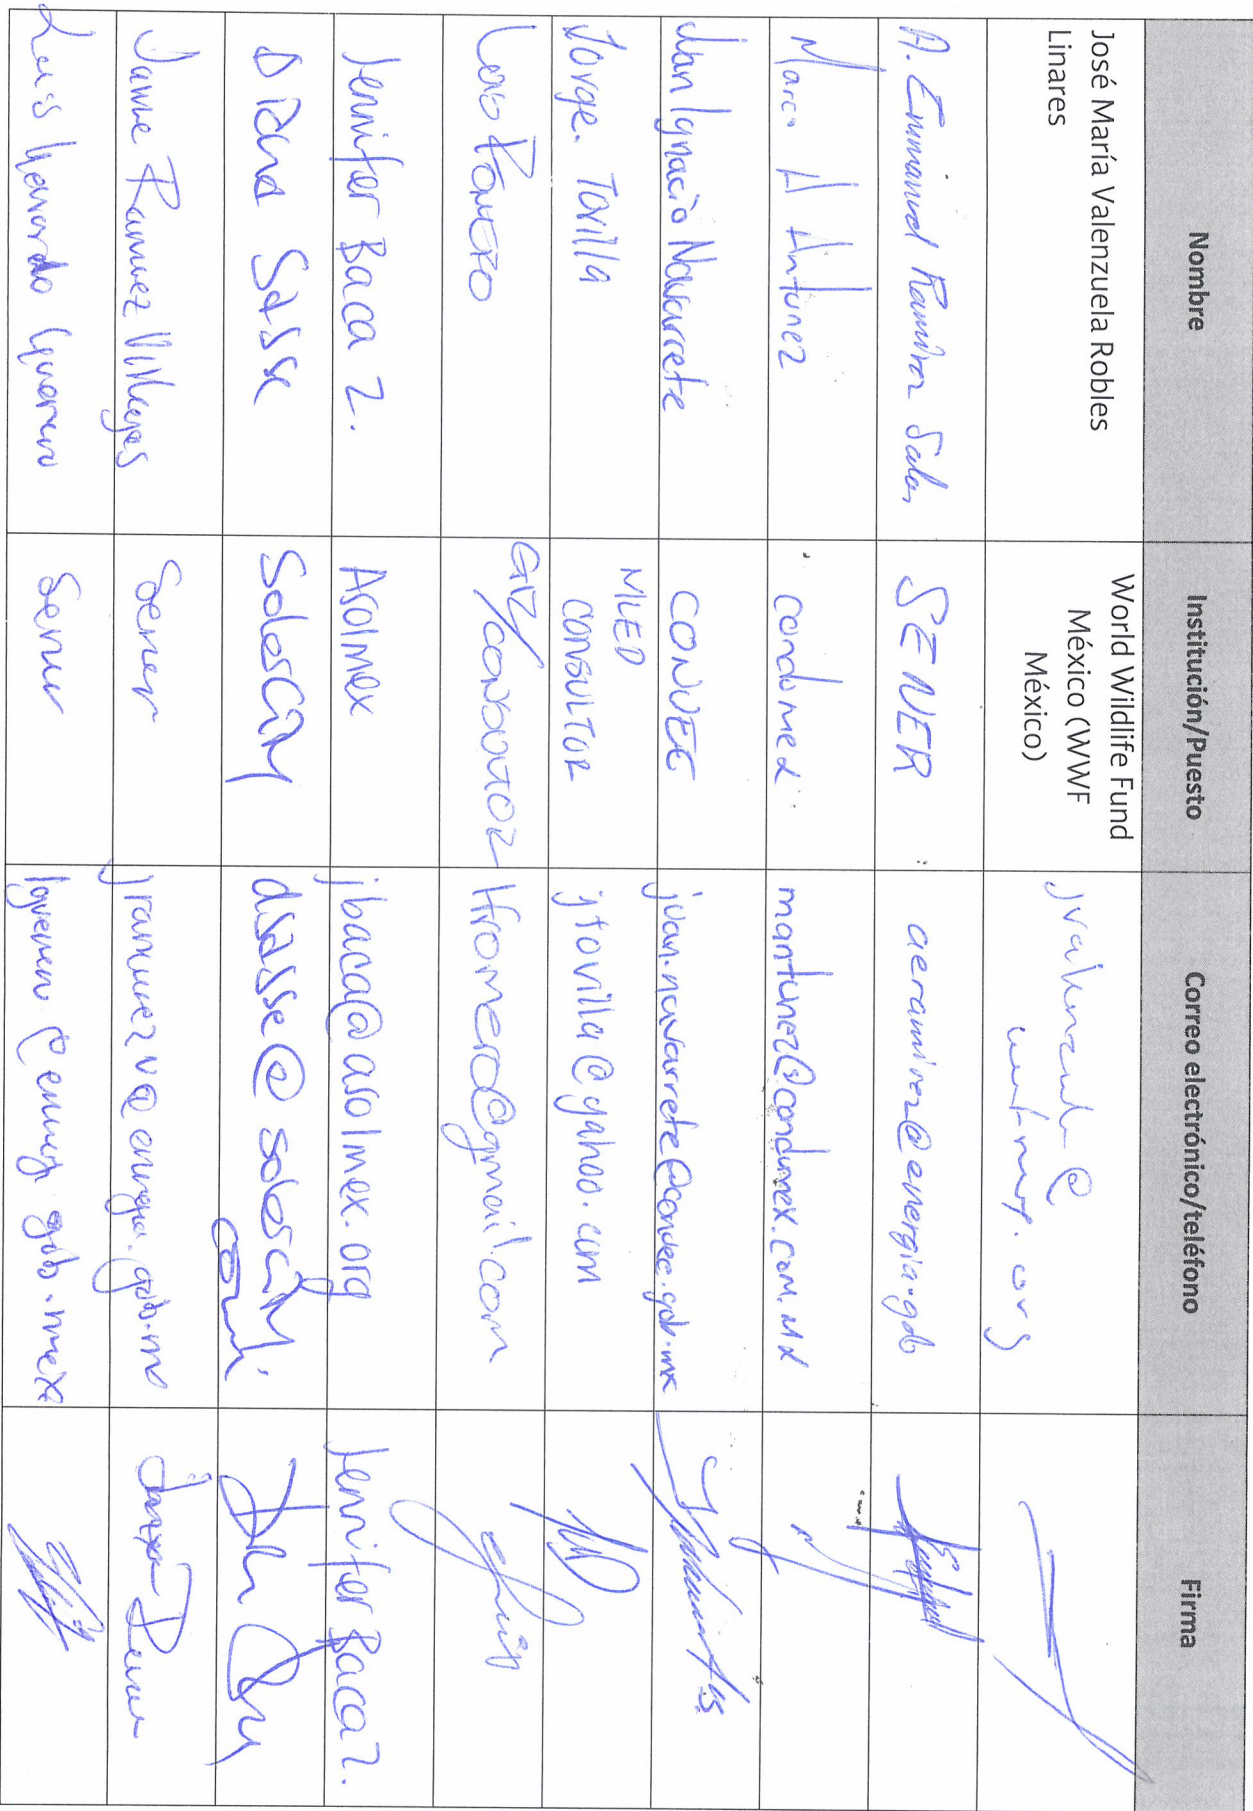 Nombre
Institución/Puesto
Correo electrónico/teléfono
Firma
José María Valenzuela Robles
Linares
World Wildlife Fund
México (WWF
México)
A. Emmanuel Ramírez Salas
SENER
aeramirez@energia.gob
Marco A Antunez
condumex
mantunez@condumex.com.mx
Juan Ignacio Navarrete
CONUEE
juan.navarrete@conuee.gob.mx
Jorge. Tovilla
MLED
CONSULTOR
jtovilla@yahoo.com
Romero
GIZ/CONSULTOR
@gmail.com
Jennifer Baca Z.
Asolmex
jbaca@asolmex.org
Jennifer Baca Z.
Diana Sasse
Solescity
dsasse@solescity.
com
Ramirez Villegas
Sener
jramirezv@energia.gob.mx
Luis Guerrero
Sener